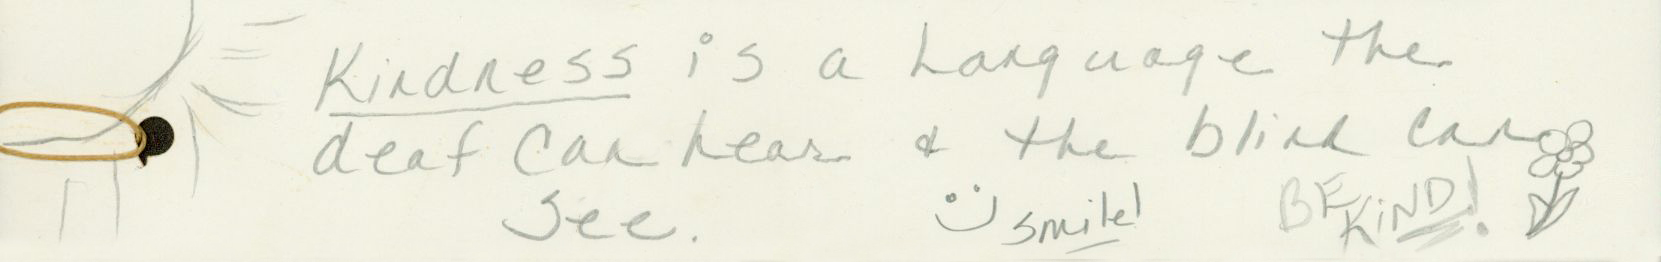 Kindness is a Language the
deaf can hear & the blind can
see.
smile!
BE
KIND!